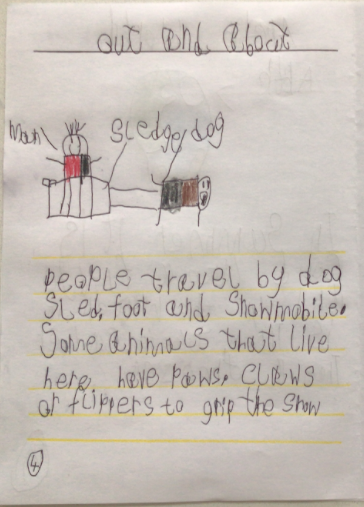 out and about
man sledge dog
people travel by dog
Sled, foot and Snowmobile.
Some animals that live
here, have paws, claws
or flippers to grip the snow
4